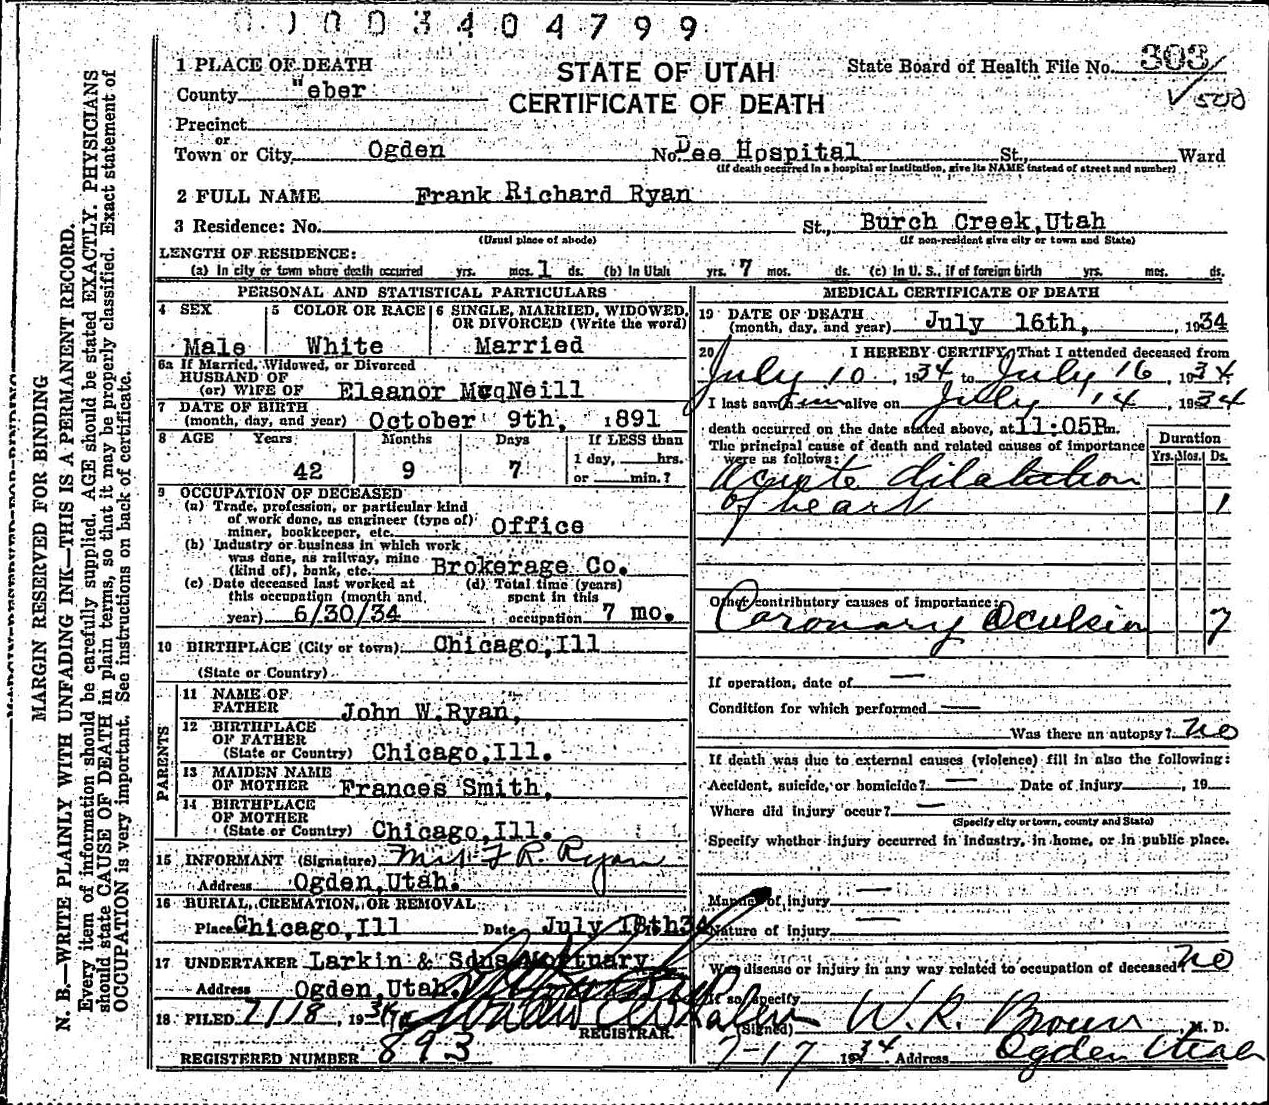 0 1 0 0 3 4 0 4 7 9 9
STATE OF UTAH
CERTIFICATE OF DEATH
State Board of Health File No. 303
✓ 500
1 PLACE OF DEATH
County Weber
Precinct
or
Town or City Ogden No. Dee Hospital St., Ward
(If death occurred in a hospital or institution, give its NAME instead of street and number)
2 FULL NAME Frank Richard Ryan
3 Residence: No. St., Burch Creek, Utah
(Usual place of abode) (If non-resident give city or town and State)
LENGTH OF RESIDENCE:
(a) In city or town where death occurred yrs. mos. 1 ds. (b) In Utah yrs. 7 mos. ds. (c) In U. S., if of foreign birth yrs. mos. ds.
PERSONAL AND STATISTICAL PARTICULARS
4 SEX
Male
5 COLOR OR RACE
White
6 SINGLE, MARRIED, WIDOWED, OR DIVORCED (Write the word)
Married
6a If Married, Widowed, or Divorced
HUSBAND OF
(or) WIFE OF Eleanor McNeill
7 DATE OF BIRTH
(month, day, and year) October 9th, 1891
8 AGE Years Months Days If LESS than
42 9 7 1 day, hrs.
or min.?
9 OCCUPATION OF DECEASED
(a) Trade, profession, or particular kind
of work done, as engineer (type of)
miner, bookkeeper, etc. Office
(b) Industry or business in which work
was done, as railway, mine
(kind of), bank, etc. Brokerage Co.
(c) Date deceased last worked at (d) Total time (years)
this occupation (month and spent in this
year) 6/30/34 occupation 7 mo.
10 BIRTHPLACE (City or town) Chicago, Ill
(State or Country)
PARENTS
11 NAME OF
FATHER John W. Ryan,
12 BIRTHPLACE
OF FATHER
(State or Country) Chicago, Ill.
13 MAIDEN NAME
OF MOTHER Frances Smith,
14 BIRTHPLACE
OF MOTHER
(State or Country) Chicago, Ill.
15 INFORMANT (Signature) Mrs F R. Ryan
Address Ogden, Utah.
16 BURIAL, CREMATION, OR REMOVAL
Place Chicago, Ill Date July 18th 34
17 UNDERTAKER Larkin & Sons Mortuary
Address Ogden, Utah.
18 FILED 7/18, 1934
REGISTRAR
REGISTERED NUMBER 893
MEDICAL CERTIFICATE OF DEATH
19 DATE OF DEATH
(month, day, and year) July 16th, , 1934
20 I HEREBY CERTIFY, That I attended deceased from
July 10, 1934 to July 16, 1934
I last saw him alive on July 14, 1934
death occurred on the date stated above, at 11:05P m.
The principal cause of death and related causes of importance
were as follows:
Duration
Yrs. Mos. Ds.
Acute dilatation
of heart 1
Other contributory causes of importance:
Coronary Oculsion 7
If operation, date of —
Condition for which performed —
Was there an autopsy? no
If death was due to external causes (violence) fill in also the following:
Accident, suicide, or homicide? — Date of injury , 19
Where did injury occur? —
(Specify city or town, county and State)
Specify whether injury occurred in industry, in home, or in public place.
Manner of injury —
Nature of injury —
Was disease or injury in any way related to occupation of deceased? no
If so, specify
(Signed) W. R. Brown, M. D.
7-17 1934 Address Ogden Utah
MARGIN RESERVED FOR BINDING
N. B.—WRITE PLAINLY WITH UNFADING INK—THIS IS A PERMANENT RECORD.
Every item of information should be carefully supplied. AGE should be stated EXACTLY. PHYSICIANS
should state CAUSE OF DEATH in plain terms, so that it may be properly classified. Exact statement of
OCCUPATION is very important. See instructions on back of certificate.